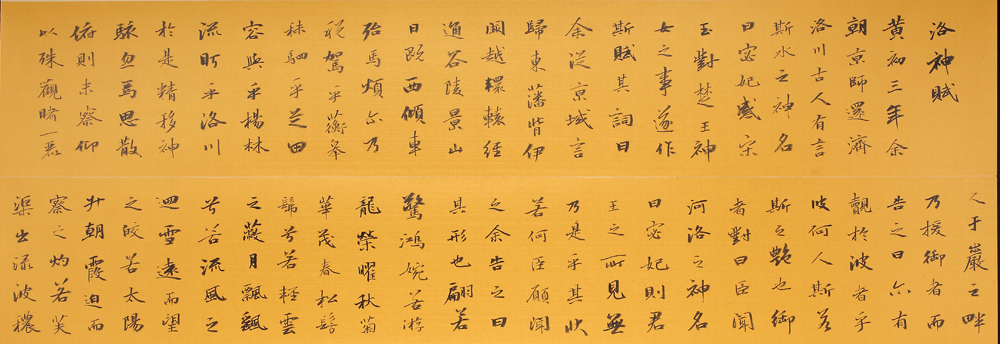 洛神賦
黄初三年余
朝京師還濟
洛川古人有言
斯水之神名
曰宓妃感宋
玉對楚王神
女之事遂作
斯賦其詞曰
余從京域言
歸東藩背伊
闕越轘轅經
通谷陵景山
日既西傾車
殆馬煩尒乃
税駕乎蘅皋
秣駟乎芝田
容與乎楊林
流眄乎洛川
於是精移神
駭忽焉思散
俯則未察仰
以殊觀睹一麗
人于巖之畔
乃援御者而
告之曰尒有
覿於彼者乎
彼何人斯若
斯之艷也御
者對曰臣聞
河洛之神名
曰宓妃則君
王之所見無
乃是乎其狀
若何臣願聞
之余告之曰
其形也翩若
驚鴻婉若游
龍榮曜秋菊
華茂春松髣
髴兮若輕雲
之蔽月飄飖
兮若流風之
迴雪遠而望
之皎若太陽
升朝霞迫而
察之灼若芙
渠出渌波穠